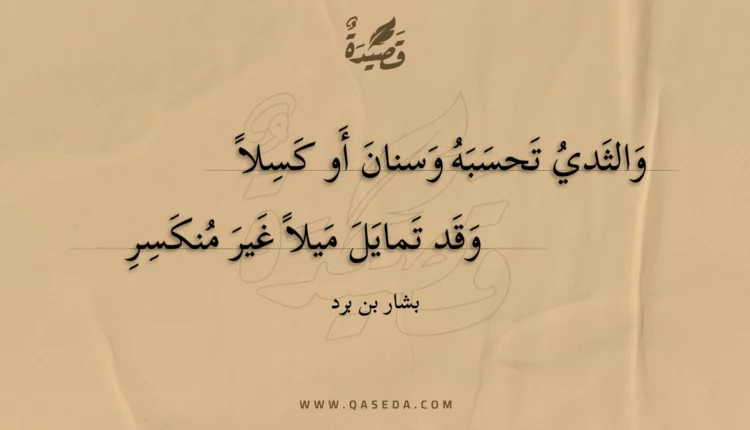 قَصِيْدَةٌ
وَالثَديُ تَحسَبَهُ وَسنانَ أَو كَسِلاً
وَقَد تَمايَلَ مَيلاً غَيرَ مُنكَسِرِ
بشار بن برد
WWW.QASEDA.COM